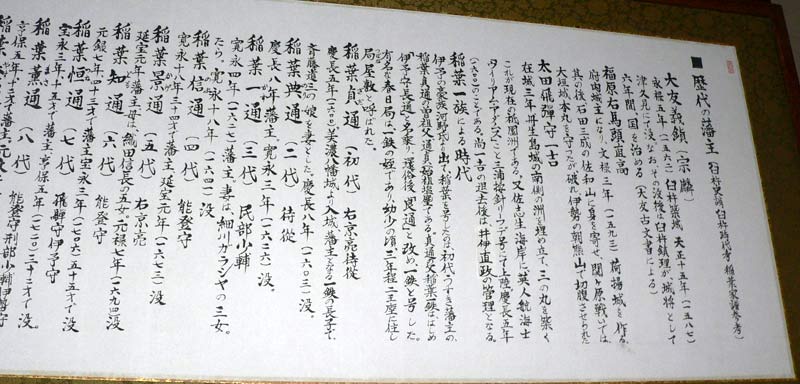 ■ 歴代の藩主 (臼杵史談 臼杵時代考 稲葉家譜参考)
大友義鎮(宗麟)
永禄五年(一五六二)臼杵築城 天正十五年(一五八七)
津久見にて没 なおその没後は臼杵鎮理が城将として
六年間国を治める(大友古文書による)
福原右馬頭直高
府内城主になり、文禄三年(一五九三)荷揚城を作る。
其の後石田三成の佐和山に身を寄せ、関ヶ原戦いでは
大垣城本丸を守ってたが破れ伊勢の朝熊山で切腹させられた
太田飛騨守一吉
在城三年 丹生島城の南側の洲を埋め立て三の丸を築く
これが現在の祇園洲である。又佐志生海岸に英人航海士
ウイリアムアダムス(こと三浦按針)リーフデ号にて上陸慶長五年
(一六〇〇)のことである。尚一吉の退去後は井伊直政の管理となる。
稲葉一族による時代
伊予の豪族河野氏より出て稲葉と号したのは初代うすき藩主の
稲葉貞通の曽祖父通貞(稲葉塩塵)である。貞通父稲葉一鉄ははじめ
伊予守長通と名乗り、還俗後良通と改め一鉄と号した。
有名な春日局は一鉄の姪であり幼少の頃三年程二王座に住し
局屋敷と呼ばれた。
稲葉貞通(初代)右京亮侍従
慶長五年(一六〇〇)美濃八幡城より入城藩主となる一鉄の長子で、
斉藤道三の娘を妻とした。慶長八年(一六〇三)没。
稲葉典通(二代)侍従
慶長八年藩主 寛永三年(一六二六)没。
稲葉一通(三代)民部少輔
寛永四年(一六二七)藩主 妻は、細川ガラシャの三女。
たら、寛永十八年(一六四一)没
稲葉信通(四代)能登守
寛永十八年三十四才で藩主 延宝元年(一六七三)没
稲葉景通(五代)右京亮
延宝元年藩主 母は織田信長の五女。元禄七年(一六九四)没
稲葉知通(六代)能登守
元録七年四十三才で藩主 宝永三年(一七〇六)五十五才で没
稲葉恒通(七代)飛騨守伊予守
宝永三年十七才で藩主 享保五年(一七二〇)三十一才で没。
稲葉董通(八代)能登守刑部少輔伊勢守
享保五年十三才で藩主 元文
稲葉